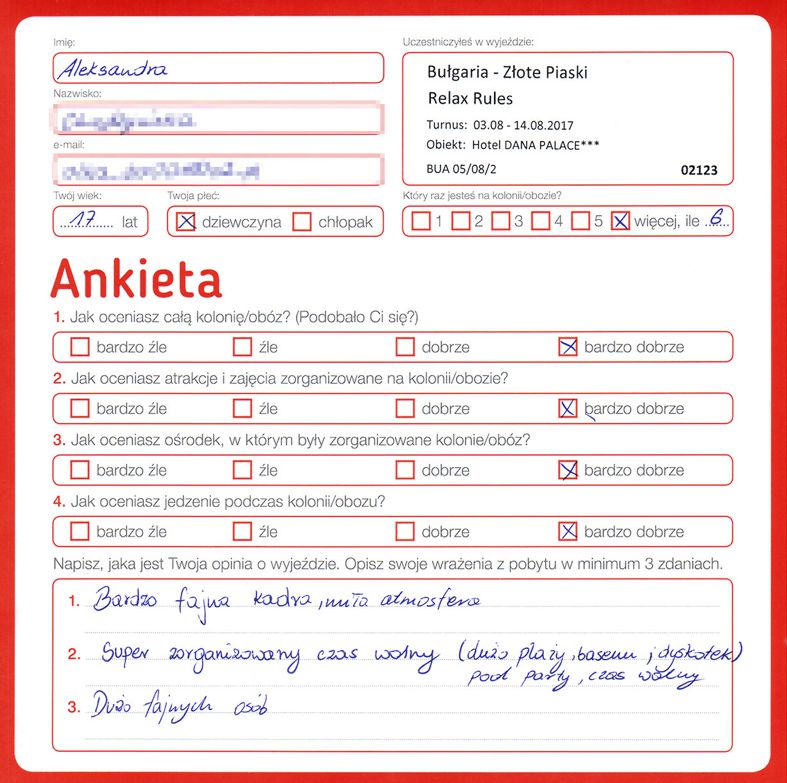 Imię:
Aleksandra
Nazwisko:
e-mail:
Twój wiek:
17 lat
Twoja płeć:
dziewczyna chłopak
Uczestniczyłeś w wyjeździe:
Bułgaria - Złote Piaski
Relax Rules
Turnus: 03.08 - 14.08.2017
Obiekt: Hotel DANA PALACE***
BUA 05/08/2 02123
Który raz jesteś na kolonii/obozie?
1 2 3 4 5 więcej, ile 6
Ankieta
1. Jak oceniasz całą kolonię/obóz? (Podobało Ci się?)
bardzo źle źle dobrze bardzo dobrze
2. Jak oceniasz atrakcje i zajęcia zorganizowane na kolonii/obozie?
bardzo źle źle dobrze bardzo dobrze
3. Jak oceniasz ośrodek, w którym były zorganizowane kolonie/obóz?
bardzo źle źle dobrze bardzo dobrze
4. Jak oceniasz jedzenie podczas kolonii/obozu?
bardzo źle źle dobrze bardzo dobrze
Napisz, jaka jest Twoja opinia o wyjeździe. Opisz swoje wrażenia z pobytu w minimum 3 zdaniach.
1. Bardzo fajna kadra, miła atmosfera
2. Super zorganizowany czas wolny (dużo plaży, basenu i dyskotek)
pool party, czas wolny
3. Dużo fajnych osób